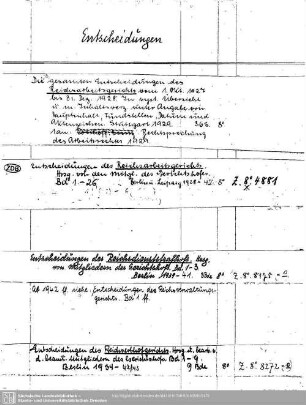 Entscheidungen
Die gesamten Entscheidungen des
Reichsarbeitsgerichts vom 1. Okt. 1927
bis 31. Dez. 1928. In syst. Übersicht
u. m. Inhaltsverz. unter Angabe von
Fundstellen, Datum und
Aktenzeichen. Stuttgart 1929. 8°
Rechtsprechung
des Arbeitsrechtes 1929.
ZDB
Entscheidungen des Reichsarbeitsgerichts.
Hrsg. von den Mitgl. des Gerichtshofes.
Bd 1-26. Berlin u. Leipzig 1928- 8° Z. 8° 4881
Entscheidungen des Reichsdienststrafhofs. Hrsg.
von Mitgliedern des Gerichtshofs Bd. 1-3
Berlin 1939-41. 3 Bde 8° Z. 8° 8175
Ab 1942 ff. siehe: Entscheidungen des Reichsverwaltungs-
gerichts. Bd 1 ff.
Entscheidungen des Hrsg. u. bearb. v.
d. Mitgliedern des Bd 1-9.
Berlin 1939-42/43 9 Bde 8° Z. 8° 8272
Sächsische Landesbibliothek -
Staats- und Universitätsbibliothek Dresden